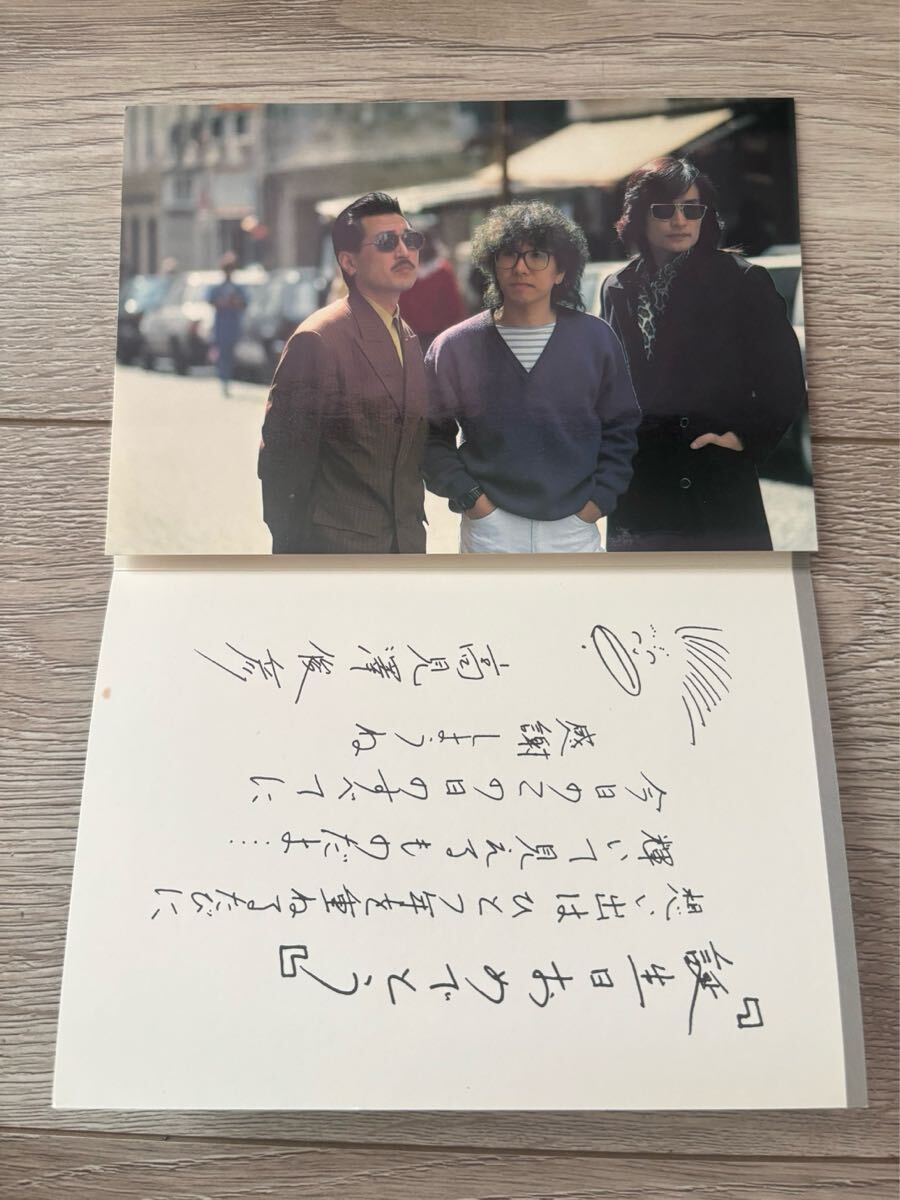 『誕生日おめでとう』
想い出はひとつ年を重ねるたびに
輝いて見えるものだよ…
今日のこの日のすべてに
感謝しようね
高見澤俊彦